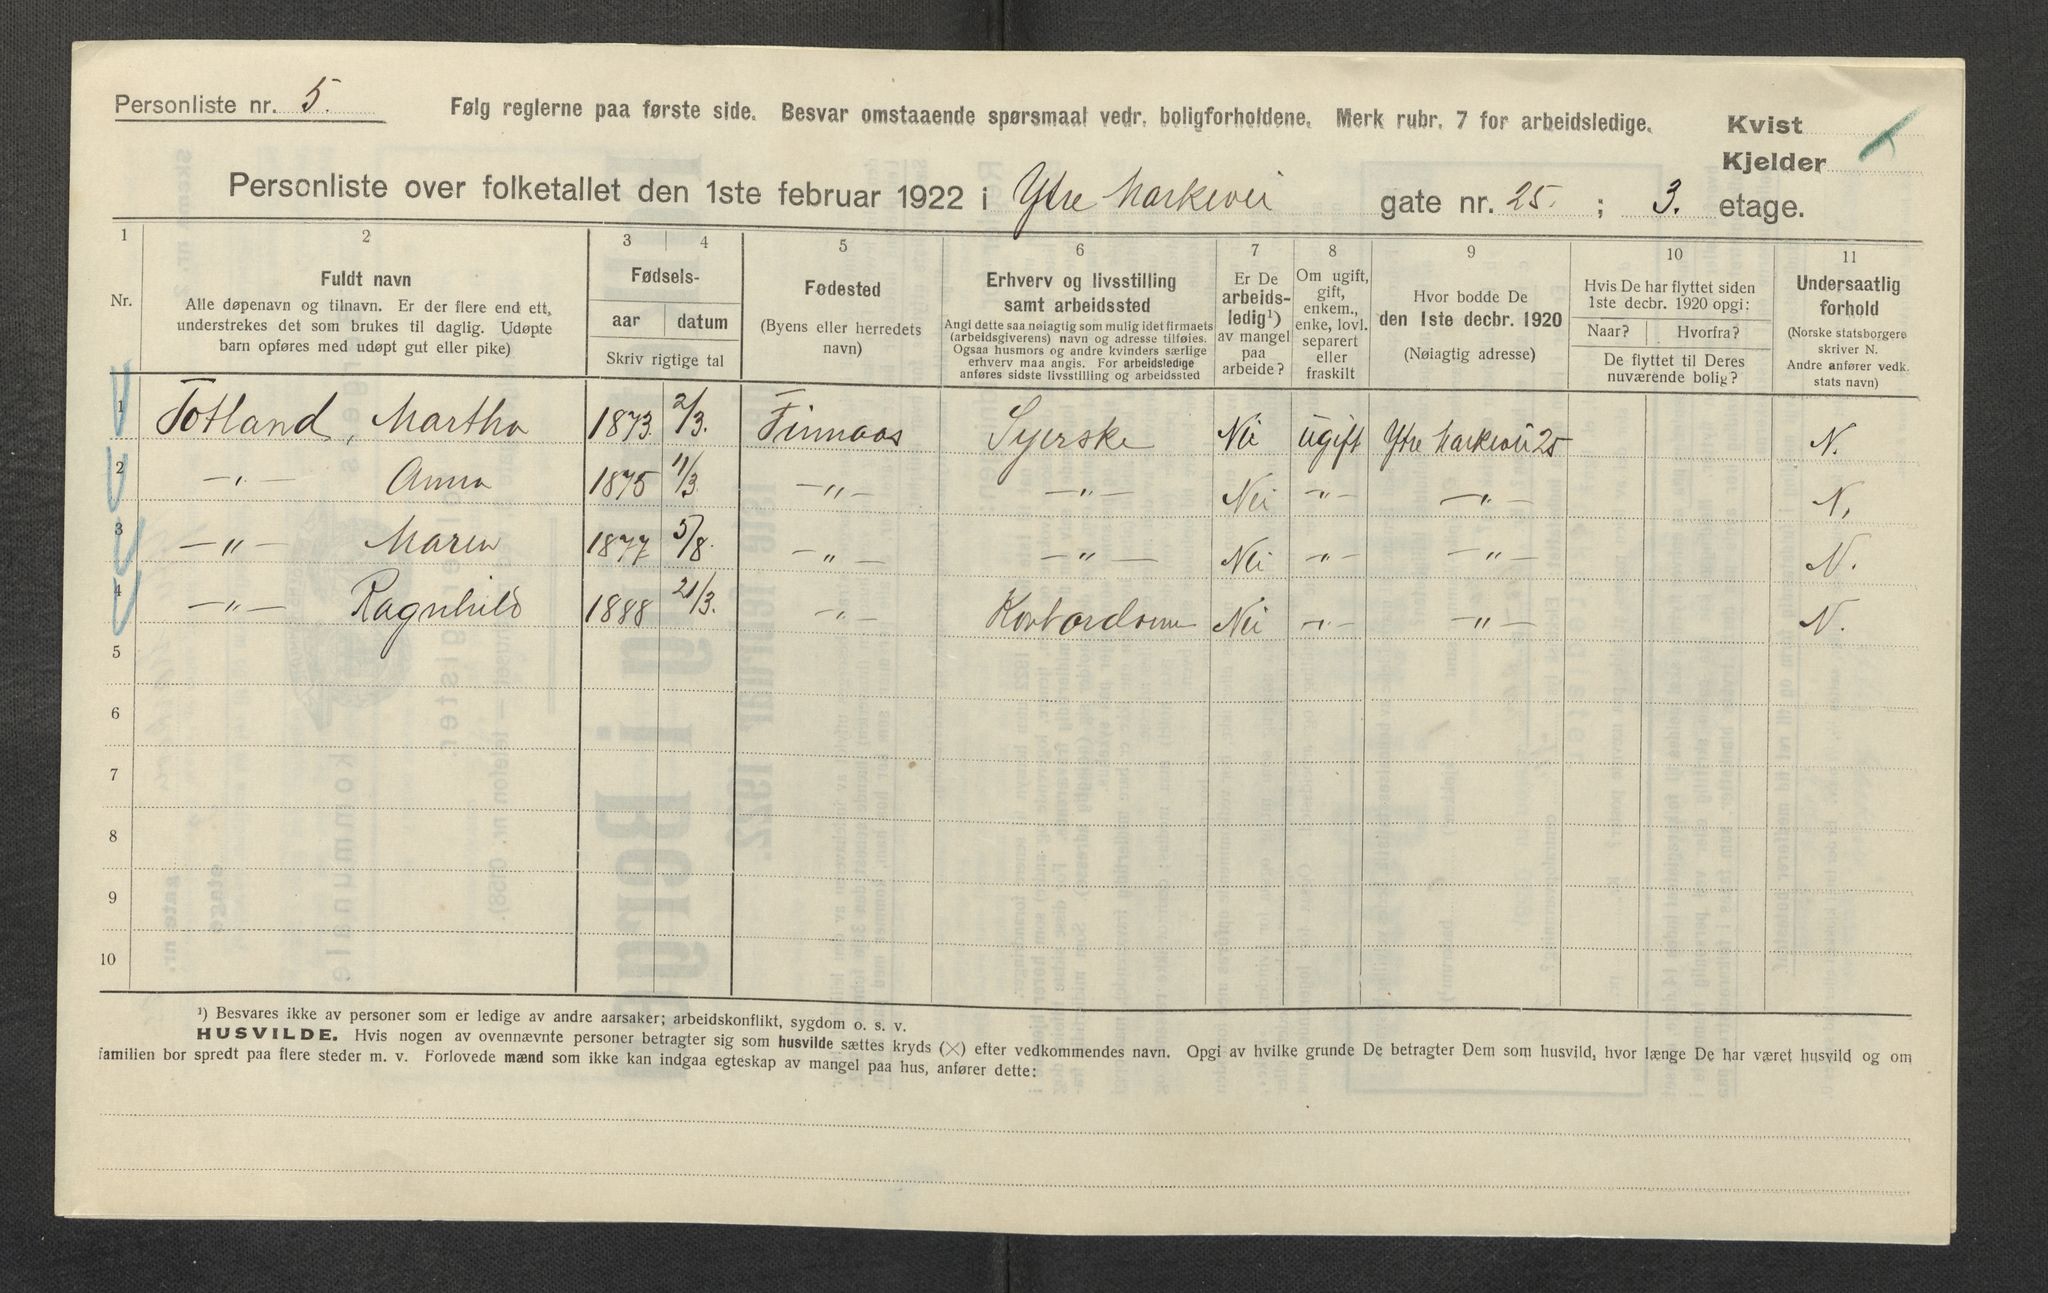 Personliste nr. 5.
Følg reglerne paa første side. Besvar omstaaende spørsmaal vedr. boligforholdene. Merk rubr. 7 for arbeidsledige.
Kvist
Kjelder
Personliste over folketallet den 1ste februar 1922 i Ytre Markevei gate nr. 25. ; 3. etage.
1 2 3 4 5 6 7 8 9 10 11
Nr.
Fuldt navn
Alle døpenavn og tilnavn. Er der flere end ett,
understrekes det som brukes til daglig. Udøpte
barn opføres med udøpt gut eller pike)
Fødsels-
aar datum
Skriv rigtige tal
Fødested
(Byens eller herredets
navn)
Erhverv og livsstilling
samt arbeidssted
Angi dette saa nøiagtig som mulig idet firmaets
(arbeidsgiverens) navn og adresse tilføies.
Ogsaa husmors og andre kvinders særlige
erhverv maa angis. For arbeidsledige
anføres sidste livsstilling og arbeidssted
Er De
arbeids-
ledig¹)
av mangel
paa
arbeide?
Om ugift,
gift,
enkem.,
enke, lovl.
separert
eller
fraskilt
Hvor bodde De
den 1ste decbr. 1920
(Nøiagtig adresse)
Hvis De har flyttet siden
1ste decbr. 1920 opgi:
Naar? Hvorfra?
De flyttet til Deres
nuværende bolig?
Undersaatlig
forhold
(Norske statsborgere
skriver N.
Andre anfører vedk.
stats navn)
1 Totland, Martha 1873 2/3. Finnaas Syerske Nei ugift Ytre Markevei 25 N.
2 -„- Anna 1875 11/3. -„- -„- Nei -„- -„- N.
3 -„- Maren 1877 5/8. -„- -„- Nei -„- -„- N.
4 -„- Ragnhild 1888 21/3. -„- Nei -„- -„- N.
5
6
7
8
9
10
¹) Besvares ikke av personer som er ledige av andre aarsaker; arbeidskonflikt, sygdom o. s. v.
HUSVILDE. Hvis nogen av ovennævnte personer betragter sig som husvilde sættes kryds (×) efter vedkommendes navn. Opgi av hvilke grunde De betragter Dem som husvild, hvor længe De har været husvild og om
familien bor spredt paa flere steder m. v. Forlovede mænd som ikke kan indgaa egteskap av mangel paa hus, anfører dette: